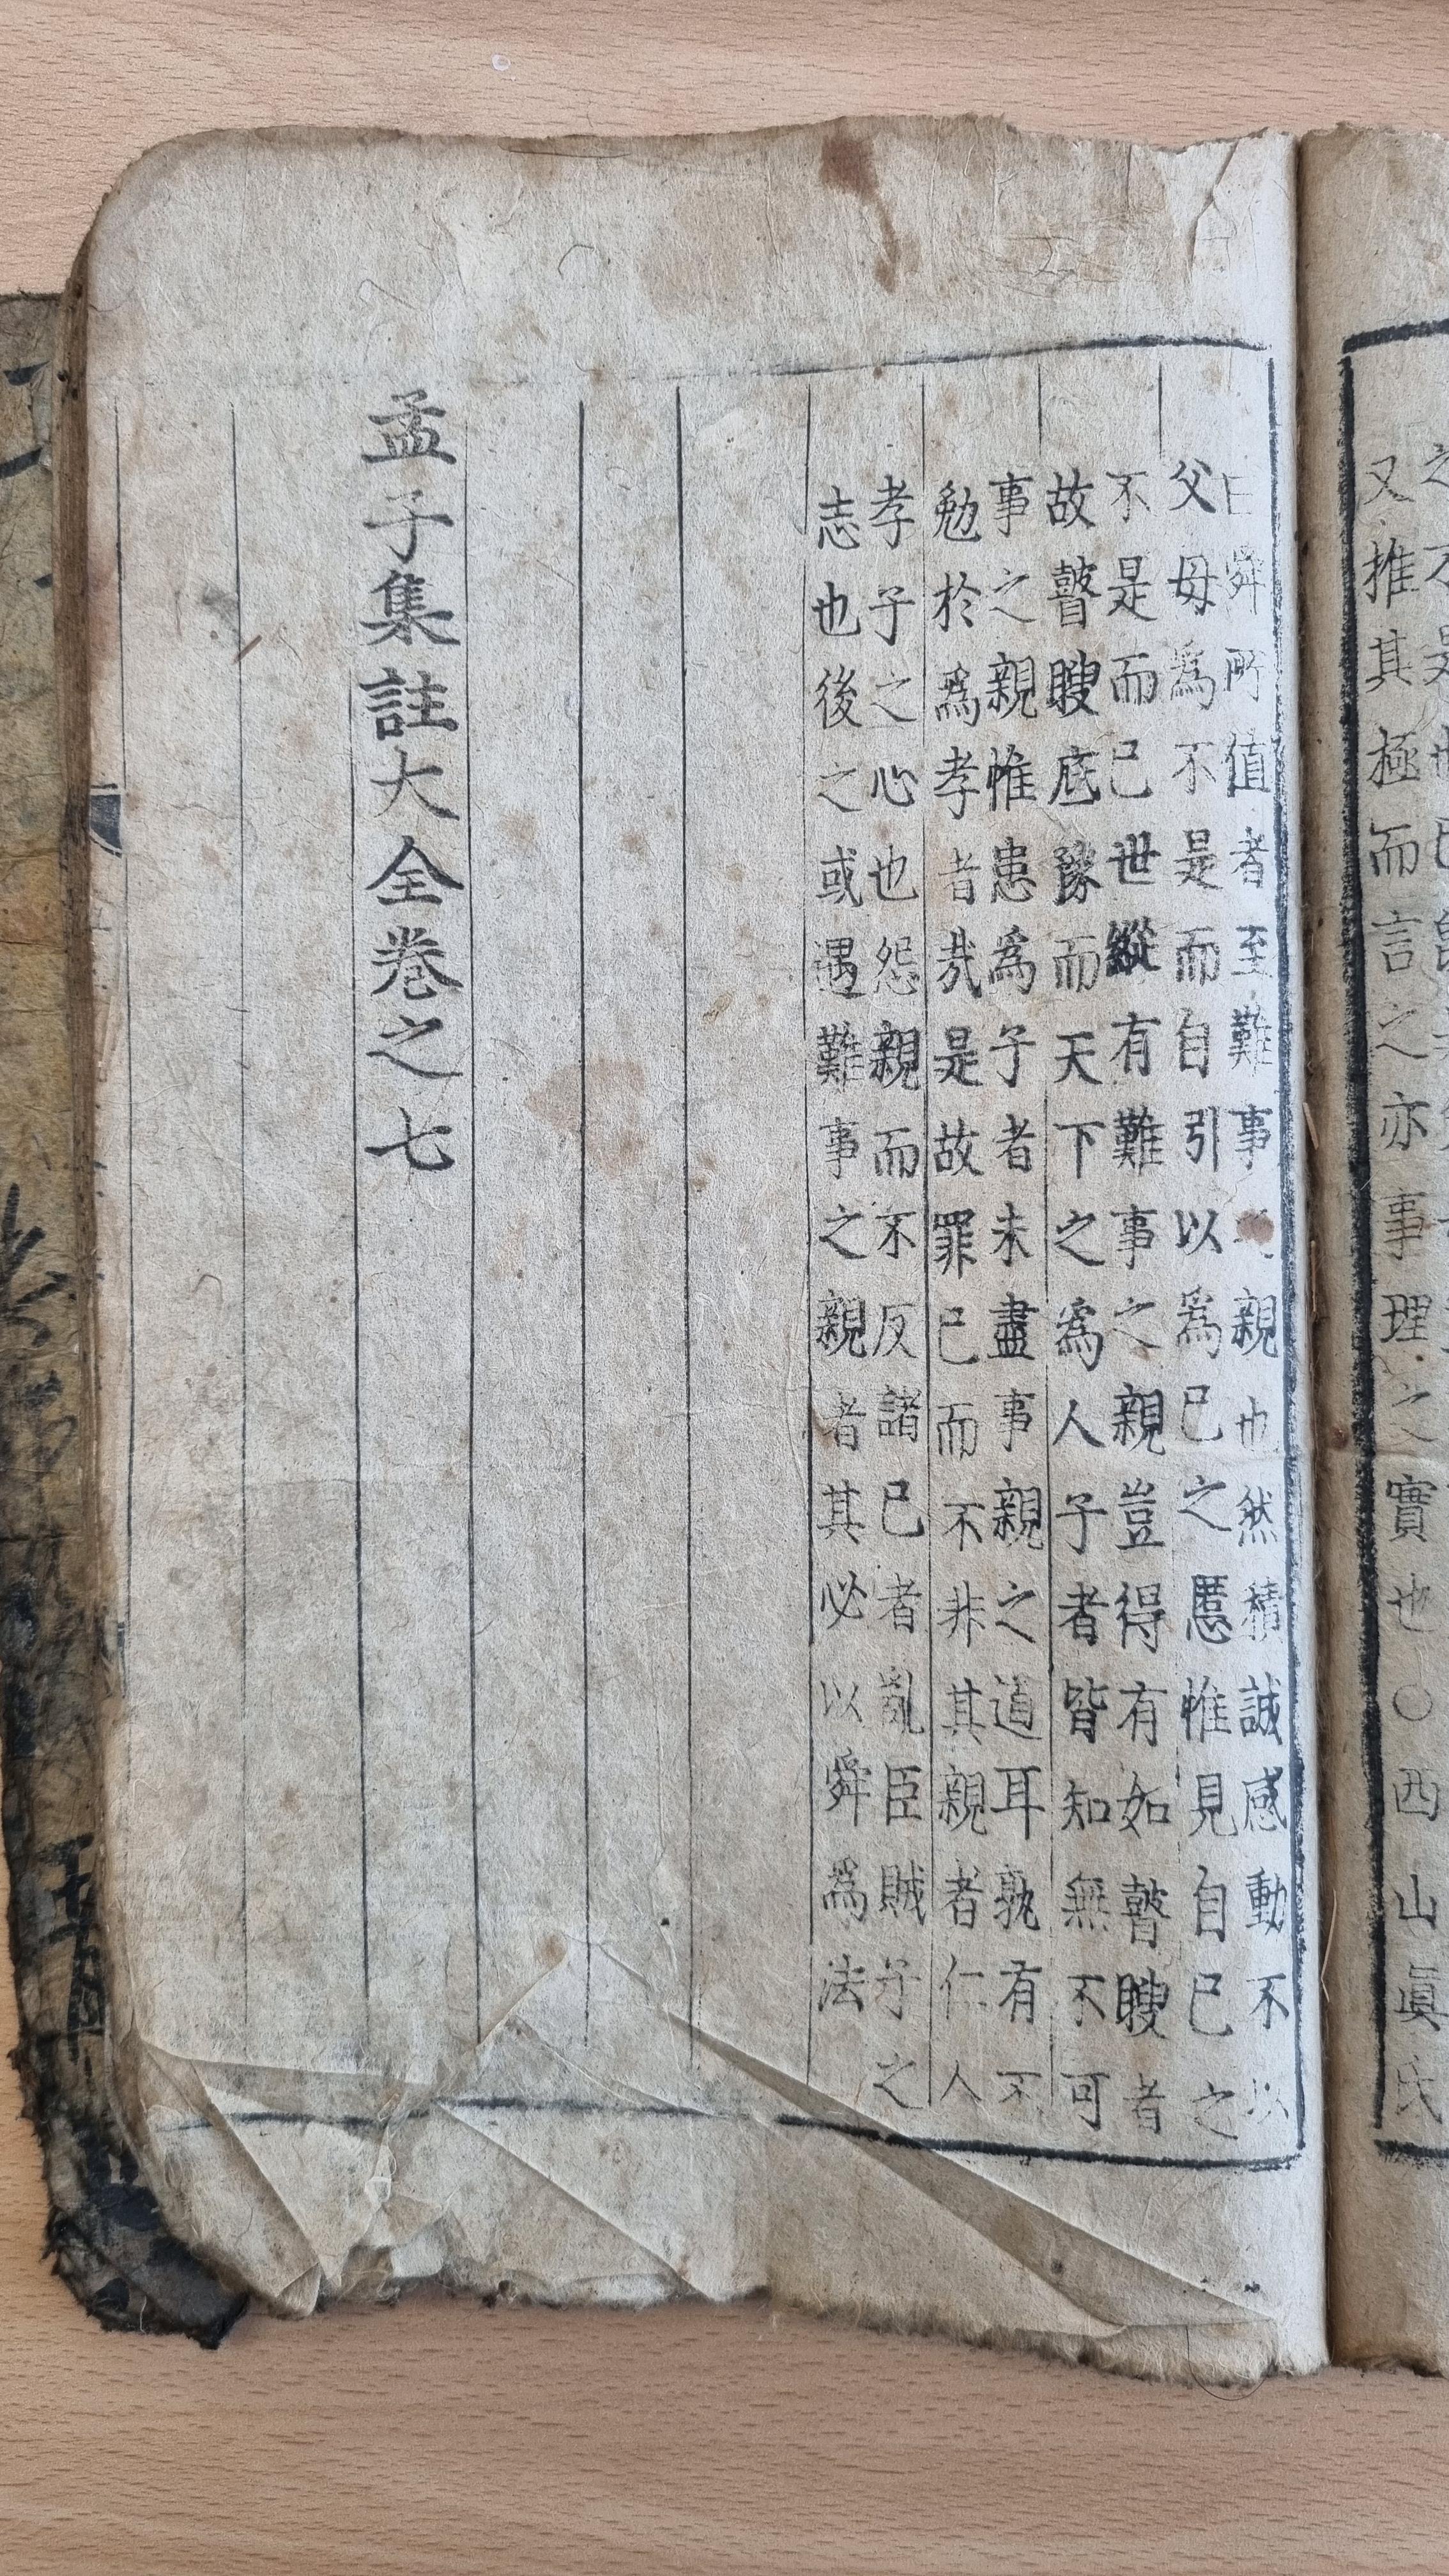 又推其極而言之亦事理之實也○西山眞氏
曰舜所值者至難事之親也然積誠感動不以
父母爲不是而自引以爲己之慝惟見自己之
不是而已世縱有難事之親豈得有如瞽瞍者
故瞽瞍底豫而天下之爲人子者皆知無不可
事之親惟患爲子者未盡事親之道耳孰有不
勉於爲孝者哉是故罪己而不非其親者仁人
孝子之心也怨親而不反諸己者亂臣賊子之
志也後之或遇難事之親者其必以舜爲法
孟子集註大全卷之七